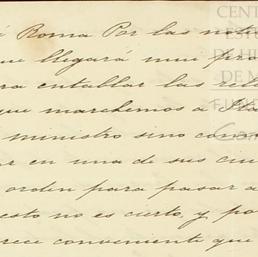 Roma Por las no
que llegará mui pro
ra entablar las rela
que marchemos a Ita
ministro sino como
en una de sus ciu
orden para pasar a
esto no es cierto, y po
rece conveniente que
CENT
ESTU
DE HI
DE M
FUND